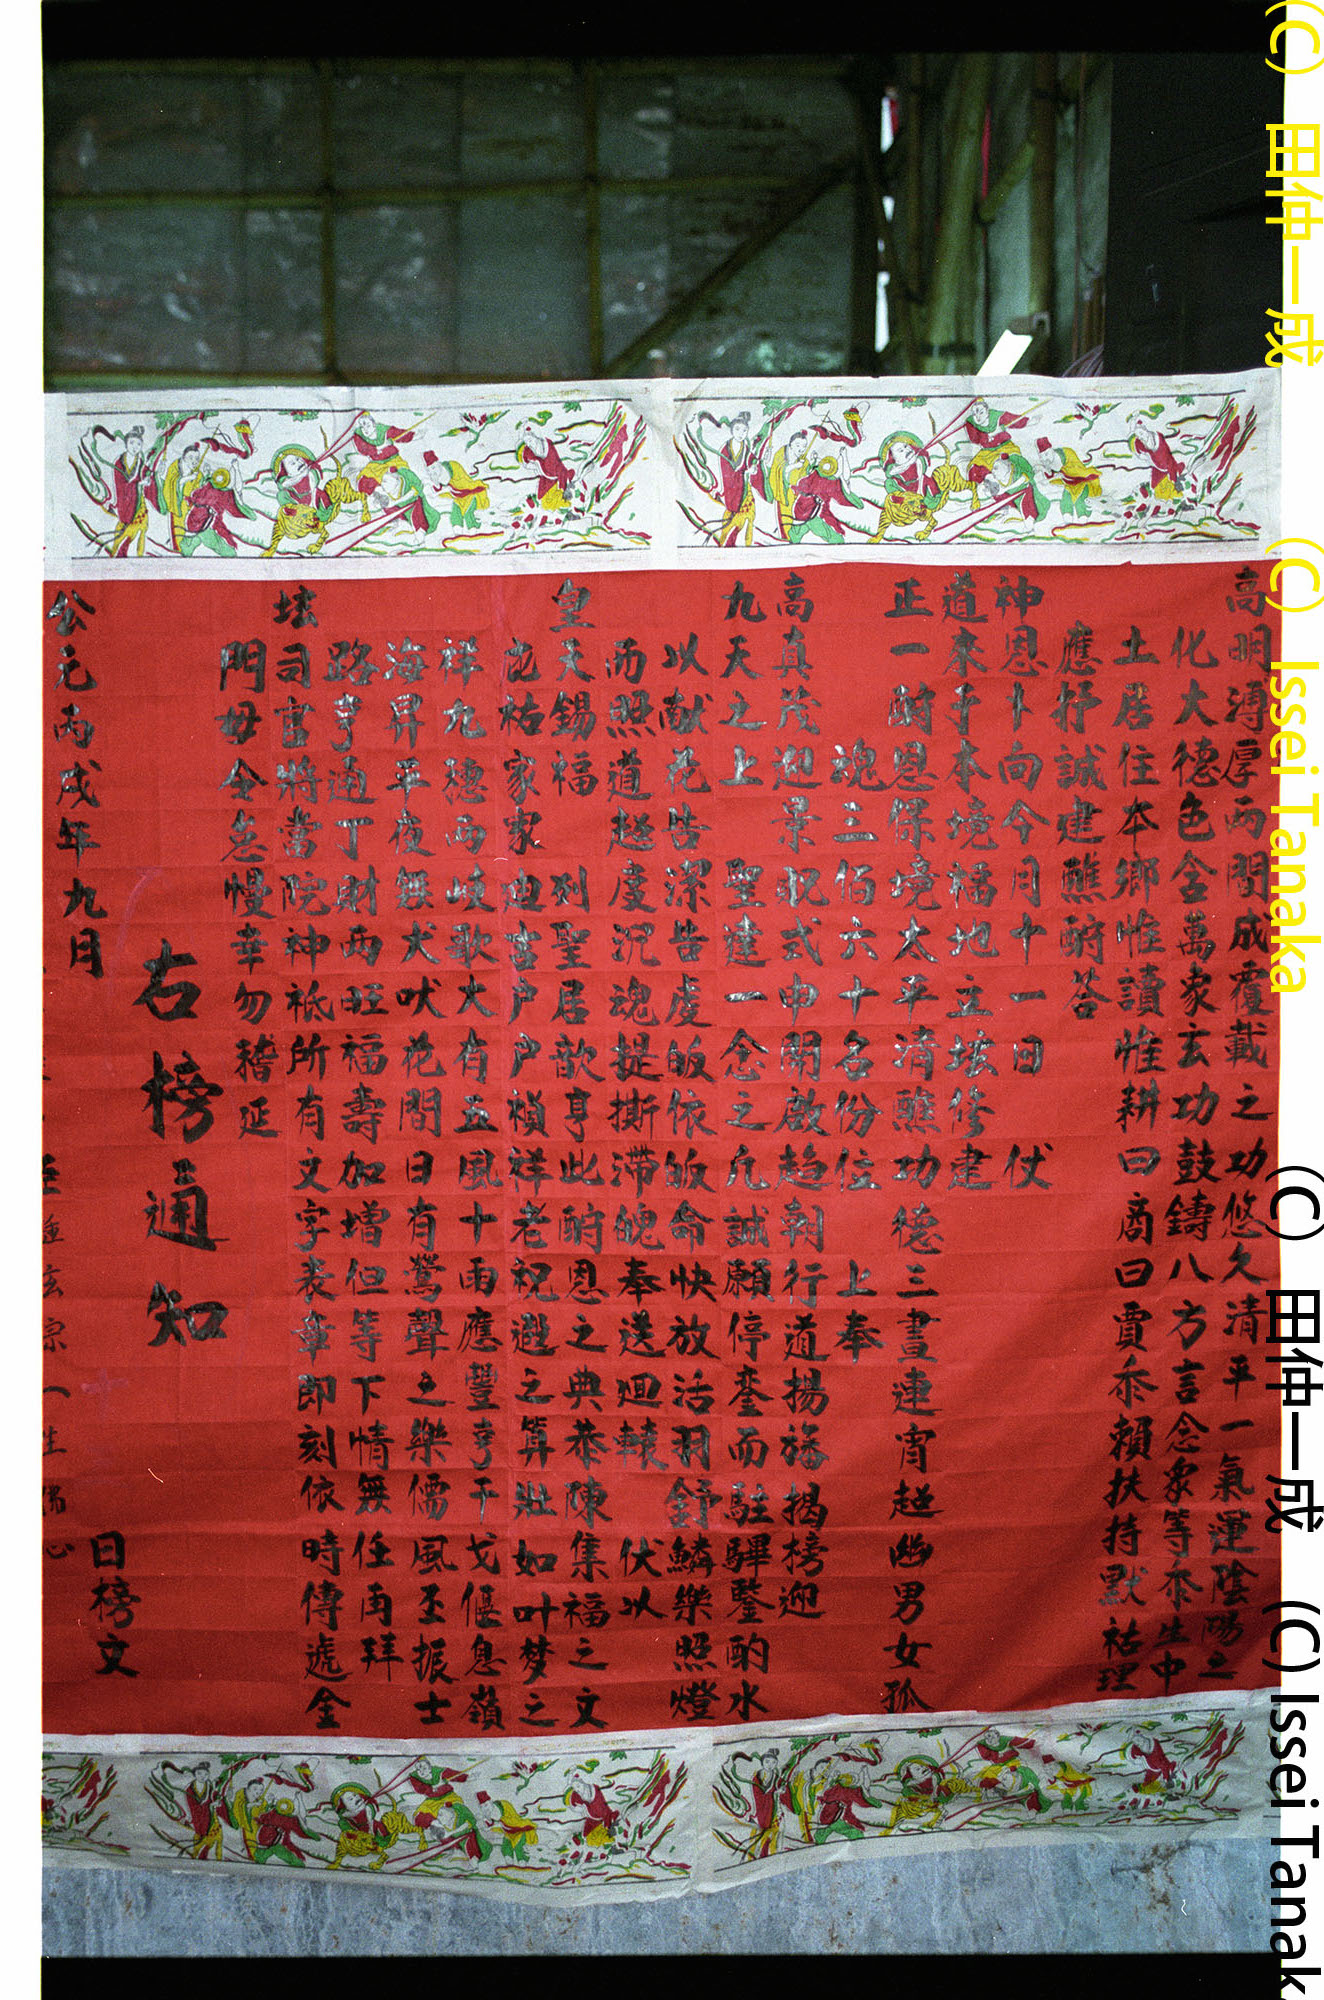 高明溥厚兩間成覆載之功悠久清平一氣運陰陽之
化大德色含萬象玄功鼓鑄八方言念象等忝生中
土居住本鄉惟讀惟耕曰商曰賈忝賴扶持默祐理
應抒誠建醮酧答
神恩卜向今月十一日 伏
道來乎本境福地立壇修建
正一酧恩保境太平清醮功德三晝連宵超幽男女孤
魂三佰六十名份位 上奉
高真茂迎景貺式申開啟趋朝行道揚旛揭榜迎
九天之上 聖達一念之凢誠願停鑾而駐驆鑒酌水
以献花告潔告虔皈依皈命快放活羽舒鱗樂照燈
而照道超度沉魂提撕滯魄奉送迴轅 伏以
皇天錫福 列聖居歆亨此酧恩之典恭陳集福之文
庇祐家家迪吉户户禎祥老祝遐之算壯如叶梦之
祥九穗两岐歌大有五風十雨應豐亨干戈偃息嶺
海昇平夜無犬吠花間日有鶯聲之樂儒風丕振士
路亨通丁財两旺福壽加增但等下情無任再拜
壇司官將當院神祇所有文字表章即刻依時傳遞金
門毋令怠慢幸勿稽延
右榜通知
公元丙戌年九月 日榜文
(C) 田仲一成 (C) Issei Tanaka
(C) 田仲一成 (C) Issei Tanak